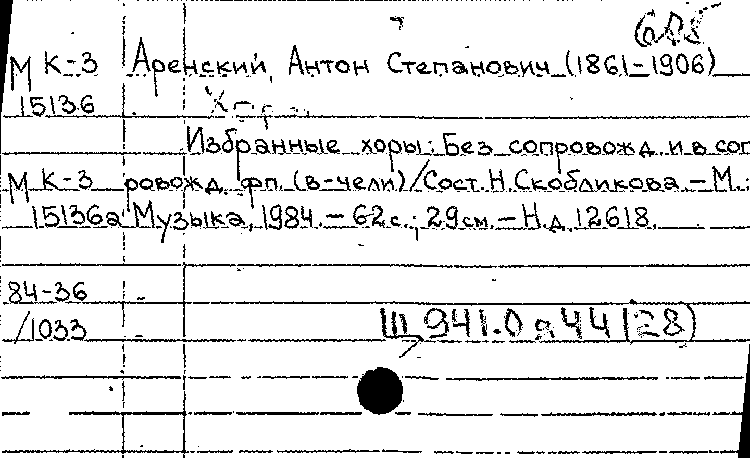 М К-3 Аренский, Антон Степанович (1861-1906)
15136
Избранные хоры: Без сопровожд. и в соп
М К-3 ровожд. фп. (в-чели)/Сост. Н. Скобликова. – М.:
15136а Музыка, 1984. – 62 с.; 29 см. – Н.д. 12618.
84-36
/1033 Щ 941.0 я 44 (28)